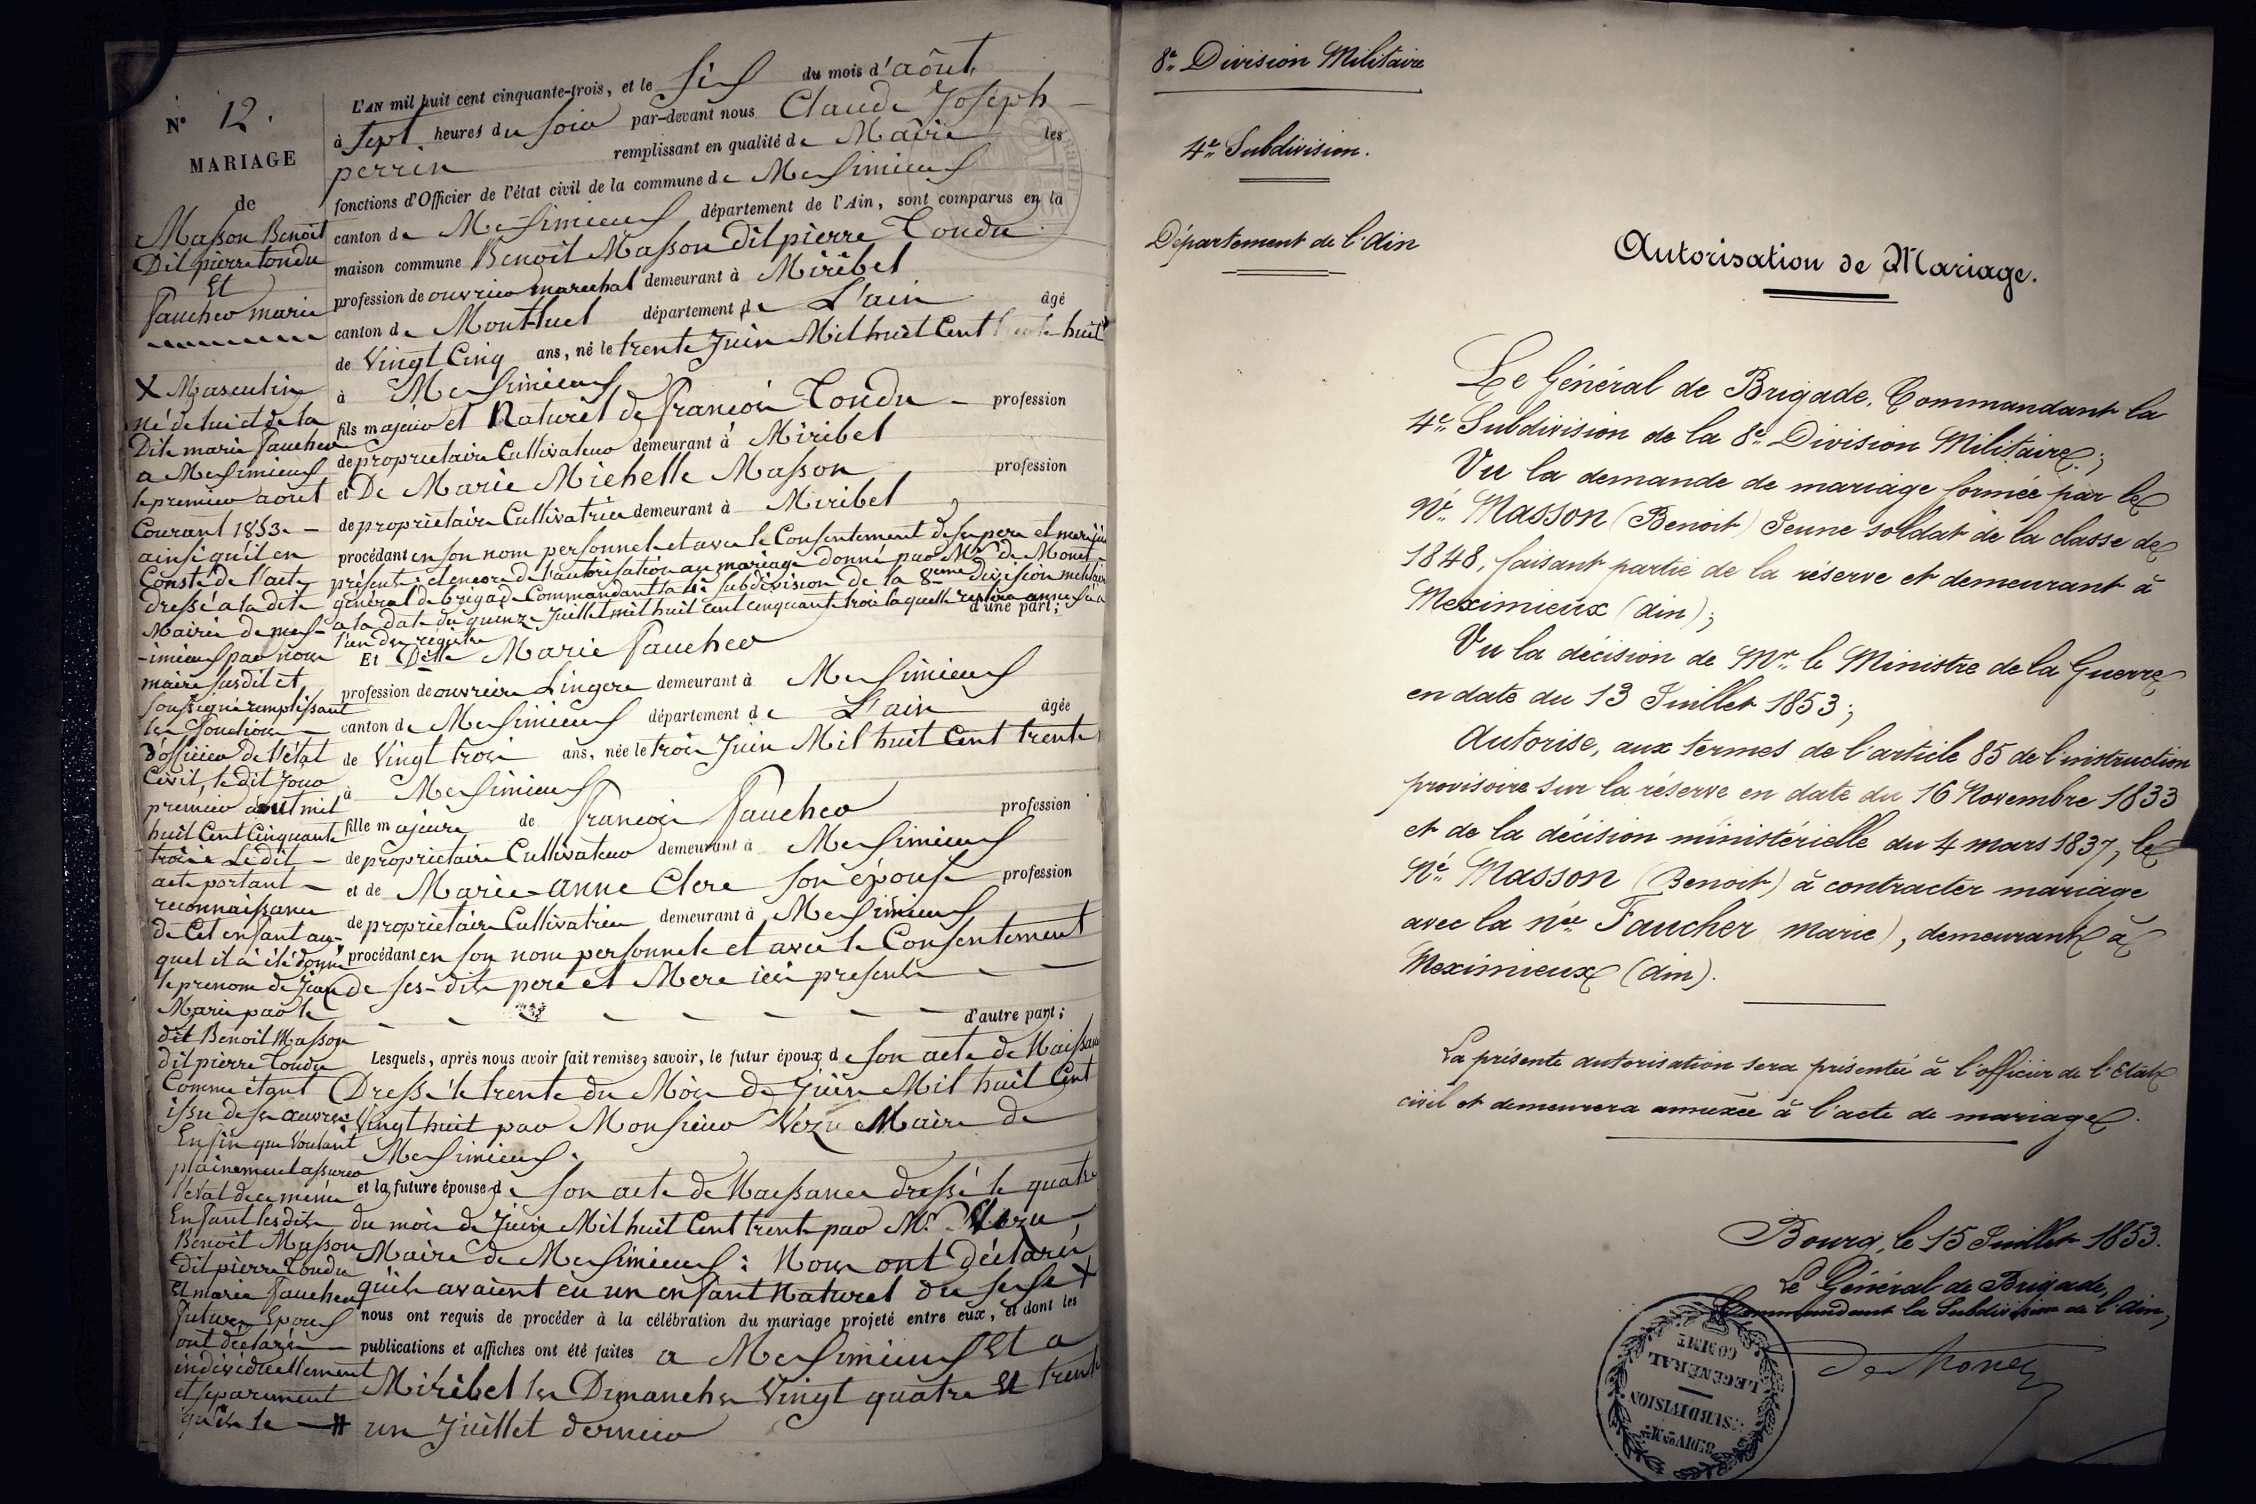 N° 12.
MARIAGE
de
Masson Benoit
Dit pierre tondu
Et
faucher marie
X Masculin
né de lui et de la
Dite marie faucher
a Mesimieus
le premier aout
Courant 1853 —
ainsi qu'il en
Conste de l'acte
dressé a la dite
Mairie de mes-
-imieus par nous
maire susdit et
soussigné remplissant
les fonctions —
d'officier de l'état
Civil, le dit jour
premier aout mil
huit Cent Cinquante
trois. Le dit —
acte portant —
reconnaissance
de Cet enfant au-
quel il a été donné
le prenom de Jean
Marie par le
dit Benoit Masson
dit pierre tondu
Comme étant
issu de ses œuvres
Enfin que voulant
plainement assurer
l'état de ce même
Enfant les dits
Benoit Masson
dit pierre tondu
et marie faucher
futurs Epous
ont déclaré —
individuellement
et séparement
qu'ils le — #
L'AN mil huit cent cinquante-trois, et le sis du mois d'aôut,
à sept heures du soir par-devant nous Claude Joseph —
perrin remplissant en qualité de Maire les
fonctions d'Officier de l'état civil de la commune de Mesimieus
canton de Mesimieus département de l'Ain, sont comparus en la
maison commune Benoit Masson Dit pierre Tondu
profession de ouvrier marechal demeurant à Miribel
canton de Montluel département de L'ain âgé
de Vingt Cinq ans, né le trente Juin Mil huit Cent huit
à Mesimieus
fils majeur et Naturel de françois Tondu — profession
de proprietaire Cultivateur demeurant à Miribel
et De Marie Michelle Masson profession
de proprietaire Cultivatrice demeurant à Miribel
procédant en son nom personnel et avec le Consentement de ses pere et mere ici
présents; et encore de l'autorisation au mariage donné par Mr de Monet
général de brigade Commandant la 4e subdivision de la 8eme division militaire
a la date du quinze Juillet mil huit cent cinquante trois laquelle restera annexée à
l'un des régistre d'une part;
Et Delle Marie faucher
profession de ouvriere Lingere demeurant à Mesimieus
canton de Mesimieus département de L'ain âgée
de Vingt trois ans, née le trois Juin Mil huit Cent trente
à Mesimieus
fille majeure de françois faucher profession
de proprietaire Cultivateur demeurant à Mesimieus
et de Marie-anne Clere son épouse profession
de proprietaire Cultivatrice demeurant à Mesimieus
procédant en son nom personnel et avec le Consentement
de ses-dits pere et Mere ici presents — —
d'autre part;
Lesquels, après nous avoir fait remise, savoir, le futur époux, de son acte de Naissance
Dressé le trente du Mois de Juin Mil huit Cent
Vingt huit par Monsieur Vezu Maire de
Mesimieus.
et la future épouse, de son acte de Naissance dressé le quatre
du mois de Juin Mil huit Cent trente par Mr. Vezu
Maire de Mesimieus: Nous ont déclaré
qu'ils avaient eu un enfant Naturel du sexe X
nous ont requis de procéder à la célébration du mariage projeté entre eux, et dont les
publications et affiches ont été faites a Mesimieus Et a
Miribel les Dimanches Vingt quatre Et trente
un Juillet dernier
8e Division Militaire
4e Subdivision.
Département de l'Ain
Autorisation de Mariage.
Le Général de Brigade, Commandant la
4e Subdivision de la 8e Division Militaire;
Vu la demande de mariage formée par le
Né Masson (Benoit) Jeune soldat de la classe de
1848, faisant partie de la réserve et demeurant à
Meximieux (Ain);
Vu la décision de Mr. le Ministre de la Guerre
en date du 13 Juillet 1853;
Autorise, aux termes de l'article 85 de l'instruction
provisoire sur la réserve en date du 16 Novembre 1833
et de la décision ministérielle du 4 mars 1837, le
Né Masson (Benoit) à contracter mariage
avec la née Faucher Marie), demeurant à
Meximieux (Ain).
La présente autorisation sera présentée à l'officier de l'Etat
civil et demeurera annexée à l'acte de mariage.
Bourg, le 15 Juillet 1853.
Le Général de Brigade,
Commandant la Subdivision de l'Ain,
de Monet
LE GÉNÉRAL
COMMT
SUBDIVISION
8e DIVon Mre